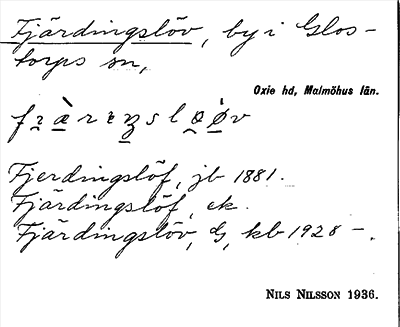 Fjärdingslöv, by i Glos-
torps sn,
Oxie hd, Malmöhus län.
Fjerdingslöf, jb 1881.
Fjärdingslöf, ek.
Fjärdingslöv, G, kb 1928 –.
NILS NILSSON 1936.